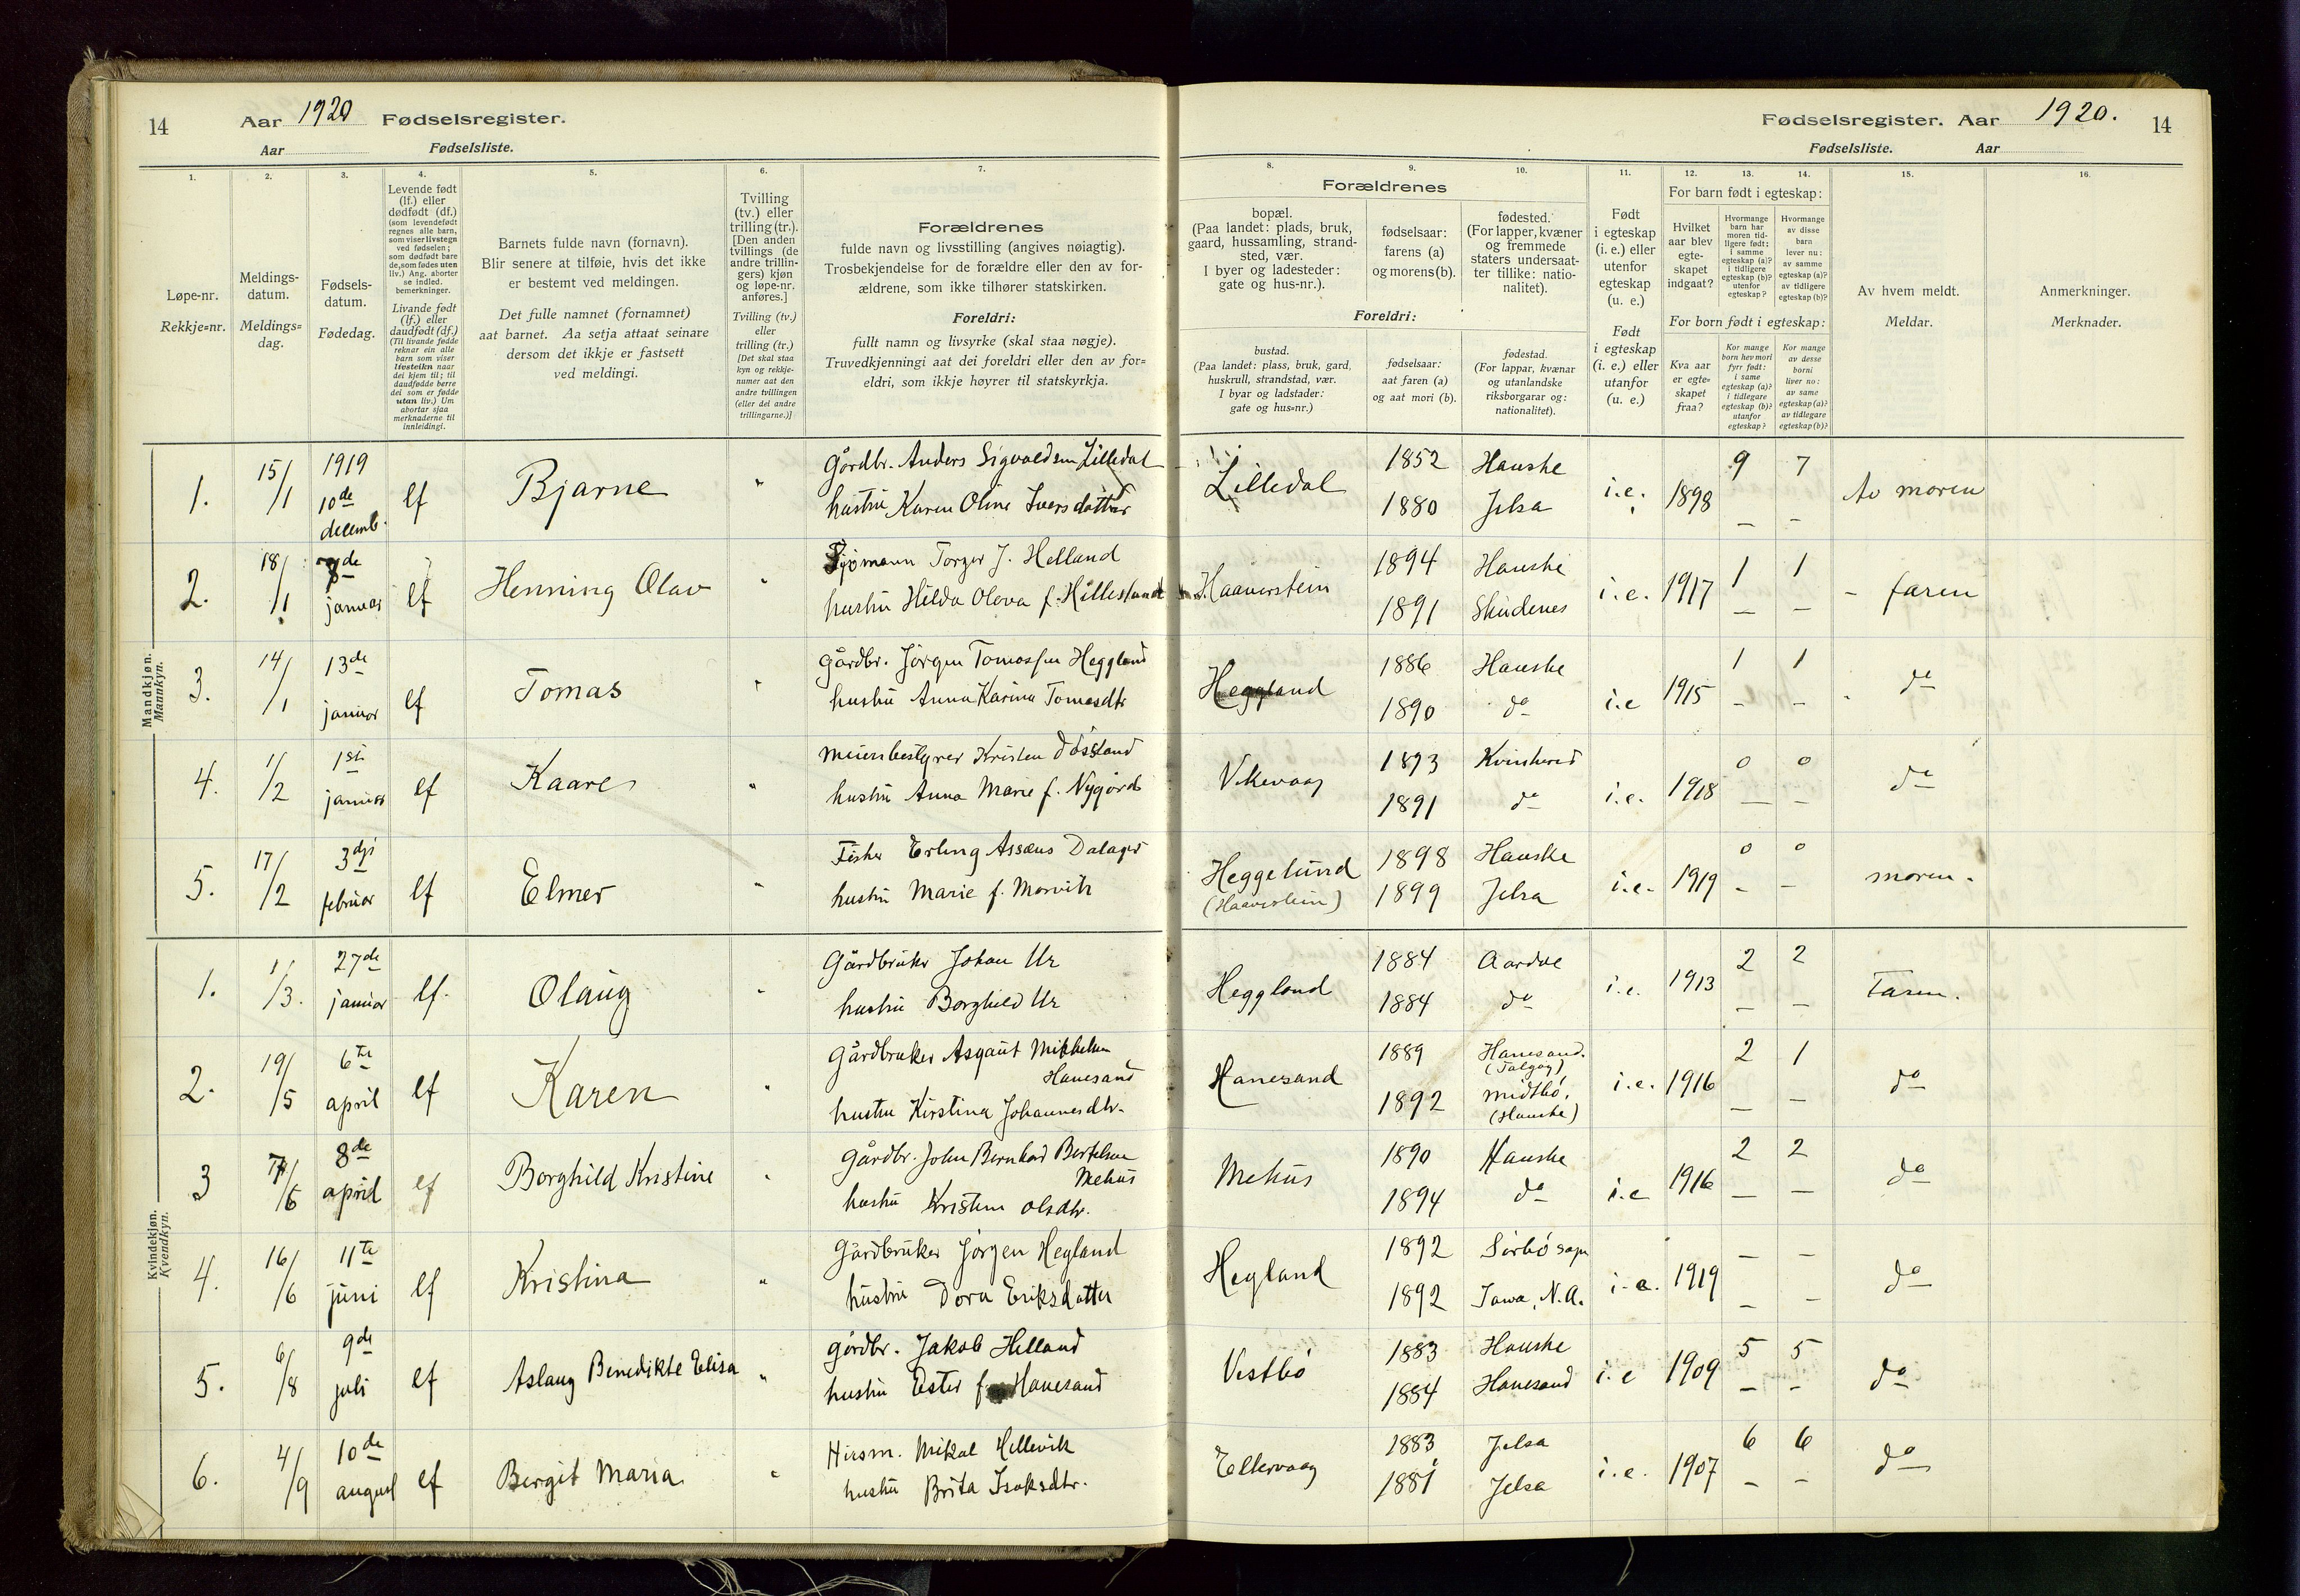 14 Aar 1920 Fødselsregister.
Aar Fødselsliste.
Fødselsregister. Aar 1920. 14
Fødselsliste. Aar
1. 2. 3. 4. 5. 6. 7. 8. 9. 10. 11. 12. 13. 14. 15. 16.
Løpe-nr.
Rekkje=nr.
Meldings-
datum.
Meldings=
dag.
Fødsels-
datum.
Fødedag.
Levende født
(lf.) eller
dødfødt (df.)
(som levendefødt
regnes alle barn,
som viser livstegn
ved fødselen;
som dødfødt bare
de, som fødes uten
liv.) Ang. aborter
se indled.
bemerkninger.
Livande født
(lf.) eller
daudfødt (df.)
(Til livande fødde
reknar ein alle
barn som viser
livsteikn naar
dei kjem til; til
daudfødde berre
dei som er fødde
utan liv.) Um
abortar sjaa
merknaderne til
innleidingi.
Barnets fulde navn (fornavn).
Blir senere at tilføie, hvis det ikke
er bestemt ved meldingen.
Det fulle namnet (fornamnet)
aat barnet. Aa setja attaat seinare
dersom det ikkje er fastsett
ved meldingi.
Tvilling
(tv.) eller
trilling (tr.).
[Den anden
tvillings (de
andre trillin-
gers) kjøn
og løpe-nr.
anføres.]
Tvilling (tv.)
eller
trilling (tr.)
[Det skal staa
kyn og rekkje-
numer aat den
andre tvillingen
(eller dei andre
trillingarne.)]
Forældrenes
fulde navn og livsstilling (angives nøiagtig).
Trosbekjendelse for de forældre eller den av for-
ældrene, som ikke tilhører statskirken.
Foreldri:
fullt namn og livsyrke (skal staa nøgje).
Truvedkjenningi aat dei foreldri eller den av for=
eldri, som ikkje høyrer til statskyrkja.
Forældrenes
bopæl.
(Paa landet: plads, bruk,
gaard, hussamling, strand-
sted, vær.
I byer og ladesteder:
gate og hus-nr.).
fødselsaar:
farens (a)
og morens (b).
fødested.
(For lapper, kvæner
og fremmede
staters undersaat-
ter tillike: natio-
nalitet).
Foreldri:
bustad.
(Paa landet: plass, bruk, gard,
huskrull, strandstad, vær.
I byar og ladstader:
gate og hus=nr.)
fødselsaar:
aat faren (a)
og aat mori (b).
fødestad.
(For lappar, kvænar
og utanlandske
riksborgarar og:
nationalitet).
Født
i egteskap
(i. e.) eller
utenfor
egteskap
(u. e.)
Født
i egteskap
(i. e.) eller
utanfor
(u. e.)
For barn født i egteskap:
Hvilket
aar blev
egte-
skapet
indgaat?
Hvormange
barn har
moren tid-
ligere født:
i samme
egteskap (a)?
i tidligere
egteskap (b)?
utenfor
egteskap?
Hvormange
av disse
barn
lever nu:
av samme
egteskap (a)?
av tidligere
egteskap (b)?
For born født i egteskap:
Kva aar
er egte=
skapet
fraa?
Kor mange
born hev mori
fyrr født:
i same
egteskap (a)?
i tidlegare
egteskap (b)?
utanfor
egteskap?
Kor mange
av desse
borni
liver no:
av same
egteskap (a)?
av tidlegare
egteskap (b)?
Av hvem meldt.
Meldar.
Anmerkninger.
Merknader.
Mandkjøn.
Mannkyn.
1. 15/1 1919 10de decemb. lf Bjarne " Gårdbr. Anders Sigvaldsen Lilledal
hustru Karen Oline Iversdatter Lilledal 1852 Hauske 1880 Jelsa i.e. 1898 9 7 – – Av moren
2. 18/1 7de januar lf Henning Olav " Sjømann Torger J. Helland
hustru Hilda Oleva f. Hillesland Haaverstein 1894 Hauske 1891 Skudenes i.e. 1917 1 1 – – - faren
3. 14/1 13de januar lf Tomas " Gårdbr. Jörgen Tomassen Heggland
hustru Anna Karina Tomasdtr Heggland 1886 Hauske 1890 do i.e 1915 1 1 – – - do
4. 1/2 1ste januar lf Kaare " Meieribestyrer Kristen Døssland
hustru Anna Marie f. Nygård Vikevaag 1893 Kvinherad 1891 do i.e. 1918 0 0 – – do
5. 17/2 3dje februar lf Elmer " Fisker Erling Assæus Dalager
hustru Marie f. Marvik Heggelund (Haaverstein) 1898 Hauske 1899 Jelsa i.e. 1919 0 0 – – moren.
Kvindekjøn.
Kvendkyn.
1. 1/3. 27de januar lf. Olaug " Gårdbruker Johan Ur
hustru Borghild Ur Heggland 1884 Aardal 1884 do i.e. 1913 2 2 – – Faren.
2. 19/5 6te april lf Karen " Gårdbruker Asgaut Mikkelsen Hanesand
hustru Kirstina Johannesdtr. Hanesand 1889 Hanesand. (Talgøy) 1892 Midtbö, (Hauske) i.e. 1916 2 1 – – do
3 /6 8de april lf Borghild Kristine " Gårdbr. John Bernhard Bertelsen Mehus
hustru Kristine Olsdtr. Mehus 1890 Hauske 1894 do i.e 1916 2 2 – – do
4. 16/6 11te juni lf Kristina " Gårdbruker Jörgen Hegland
hustru Dora Eriksdatter Hegland 1892 Sörbö sogn 1892 Iowa, N.A. i.e. 1919 – – – – do
5. 6/8 9de juli lf Aslaug Benedikte Elisa " gårdbr. Jakob Helland
hustru Ester f. Hanesand Vestbö 1883 Hauske 1884 Hanesand i.e 1909 5 5 – – do
6. 4/9 10de august lf Bergit Maria " Husm. Mikal Hellevik
hustru Brita Isaksdtr. Ellervaag 1883 Jelsa 1881 Jelsa i.e. 1907 6 6 – – do